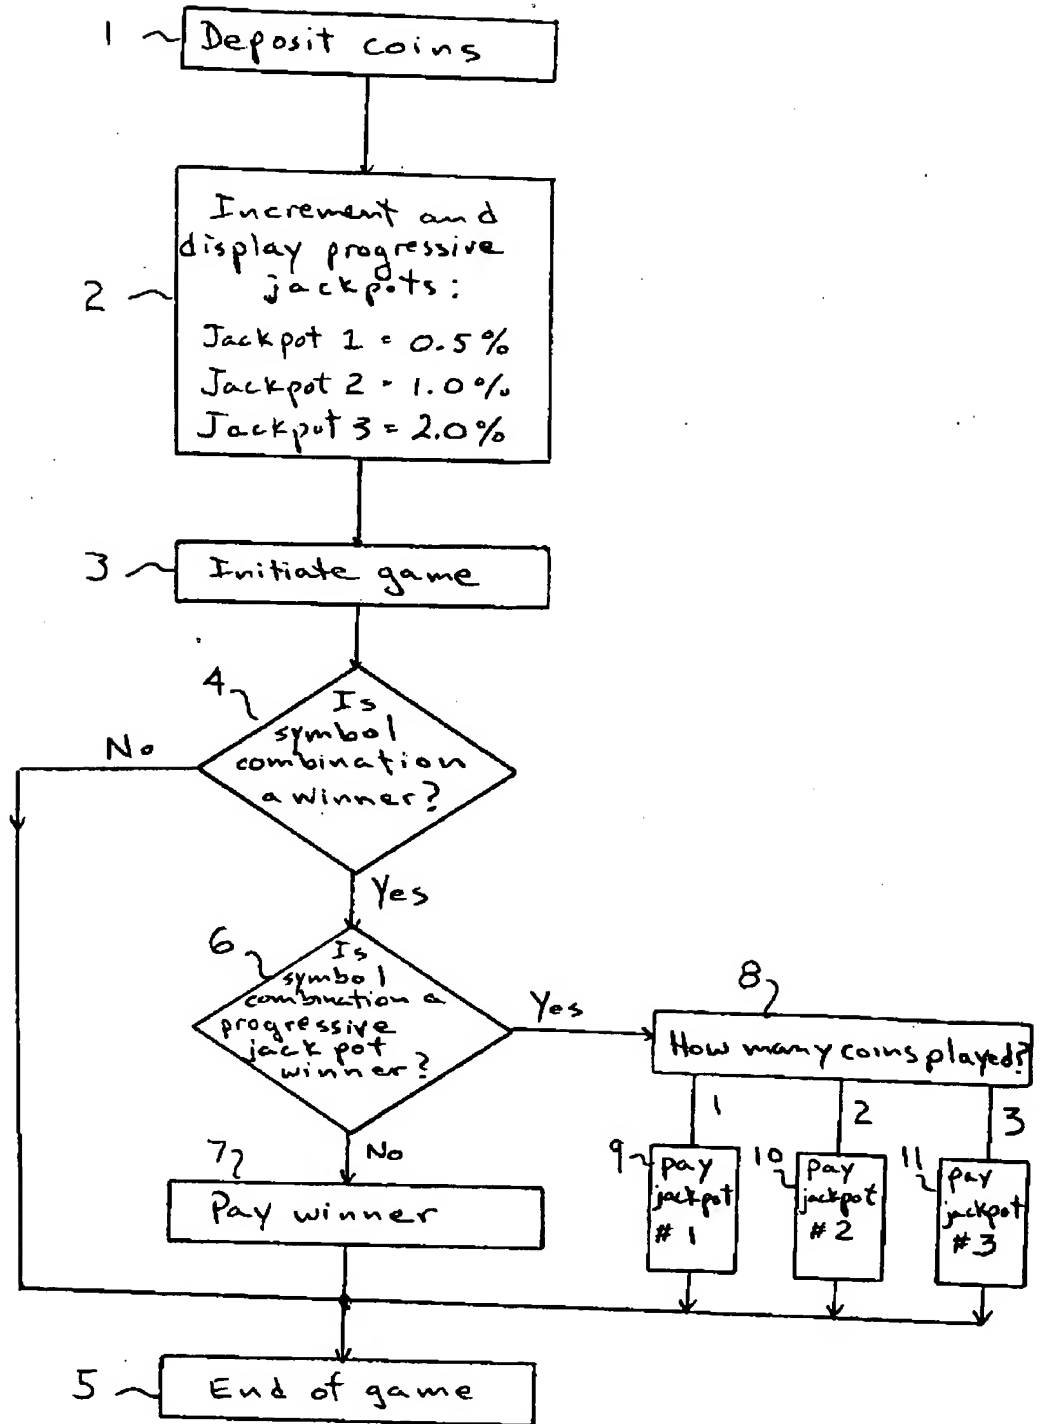 1 Deposit coins
2
Increment and
display progressive
jackpots:
Jackpot 1 = 0.5%
Jackpot 2 = 1.0%
Jackpot 3 = 2.0%
3 Initiate game
4
Is
symbol
combination
a winner?
No
Yes
6
Is
symbol
combination a
progressive
jackpot
winner?
Yes
8
How many coins played?
1
2
3
No
7
Pay winner
9
pay
jackpot
# 1
10
pay
jackpot
# 2
11
pay
jackpot
# 3
5 End of game